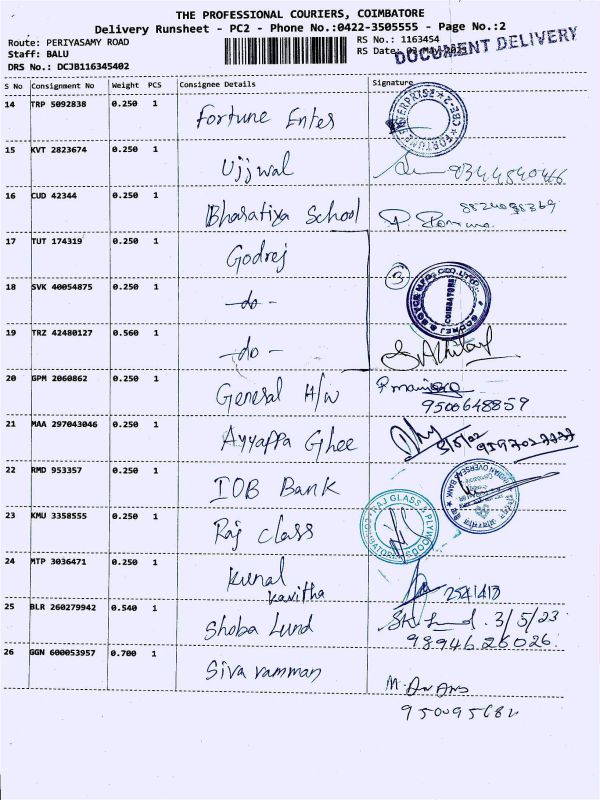 THE PROFESSIONAL COURIERS, COIMBATORE
Delivery Runsheet - PC2 - Phone No.:0422-3505555 - Page No.:2
Route: PERIYASAMY ROAD
RS No.: 1163454
Staff: BALU
RS Date: 03
DOCUMENT DELIVERY
DRS No.: DCJB116345402
S No Consignment No Weight PCS Consignee Details Signature
14 TRP 5092838 0.250 1 Fortune Enter
15 KVT 2823674 0.250 1 Ujjwal
16 CUD 42344 0.250 1 Bharatiya School
17 TUT 174319 0.250 1 Godrej
18 SVK 40054875 0.250 1 -do- 3
COIMBATORE
19 TRZ 42480127 0.560 1 -do-
20 GPM 2060862 0.250 1 General H/W
9500648859
21 MAA 297043046 0.250 1 Ayyappa Ghee
22 RMD 953357 0.250 1 IOB Bank
INDIAN OVERSEAS BANK
23 KMU 3358555 0.250 1 Raj Class
RAJ GLASS & PLYWOODS
COIMBATORE
24 MTP 3036471 0.250 1 Kunal
Kavitha
25 BLR 260279942 0.540 1 Shoba Lund 3/5/23
9894626026
26 GGN 600053957 0.700 1 Siva ramman